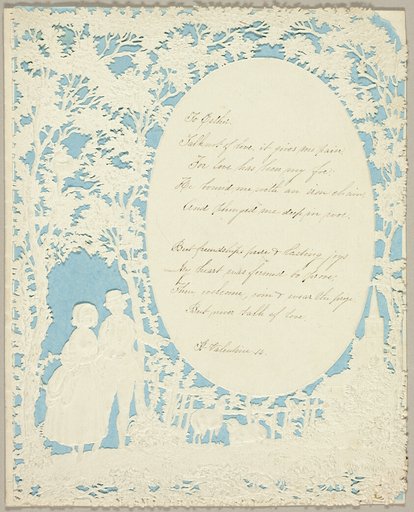 To Celia.
Talk not of love, it gives me pain,
For love has been my foe:
He bound me with an iron chain,
And plunged me deep in woe.
But friendship's pure & lasting joys
My heart was formed to prove,
Then welcome, win & wear the prize
But never talk of love
St Valentine